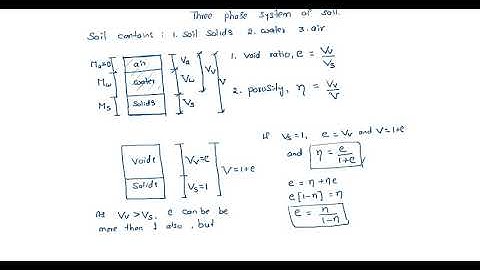 Three phase system of soil.
Soil contains : 1. Soil solids 2. water 3. air
Ma=0 air Va
Mw water Vw Vv V
Ms Solids Vs
1. void ratio, e = Vv/Vs
2. porosity, η = Vv/V
Voids Vv=e
Solids Vs=1 V=1+e
If Vs=1, e=Vv and V=1+e
and η = e/1+e
e = η+ηe
e[1-η] = η
e = η/1-η
As Vv>Vs, e can be be
more then 1 also, but